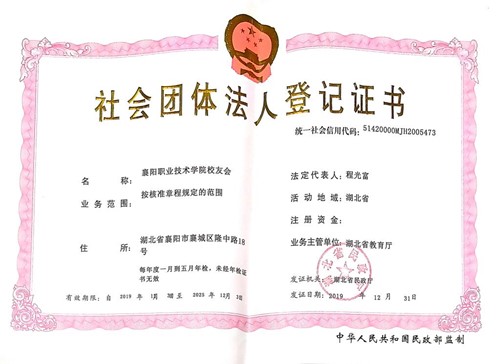 社会团体法人登记证书
统一社会信用代码:51420000MJH2005473
名称: 襄阳职业技术学院校友会
业务范围: 按核准章程规定的范围
住所: 湖北省襄阳市襄城区隆中路18
号
每年度一月到五月年检,未经年检证
书无效
有效期限:自 2019 年 1月 日至 2025 年 12月3 日
法定代表人:程光富
活动地域:湖北省
注册资金:
业务主管单位:湖北省教育厅
发证机关:湖北省民政厅
发证日期:2019 年 12 月 31日
中华人民共和国民政部监制